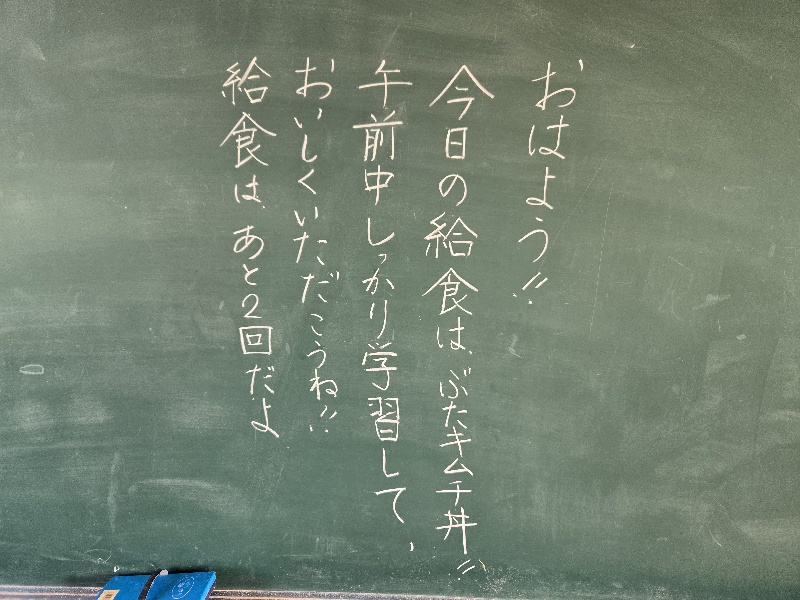 おはよう!!
今日の給食は、ぶたキムチ丼!!
午前中しっかり学習して、
おいしくいただこうね!!
給食は、あと2回だよ